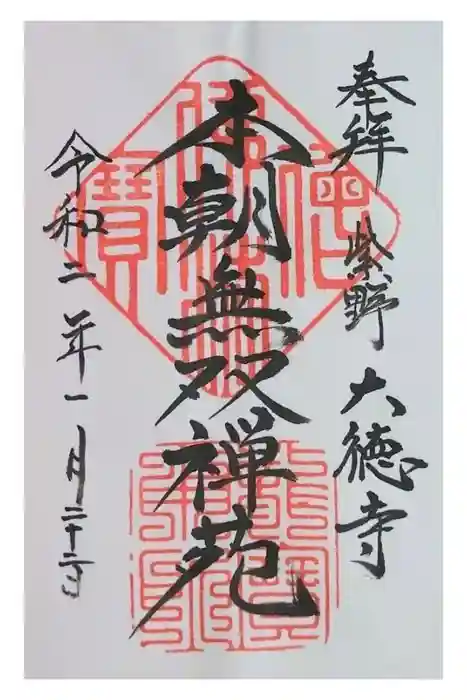 奉拝 紫野 大徳寺
本朝無双禅苑
令和二年一月二十二日